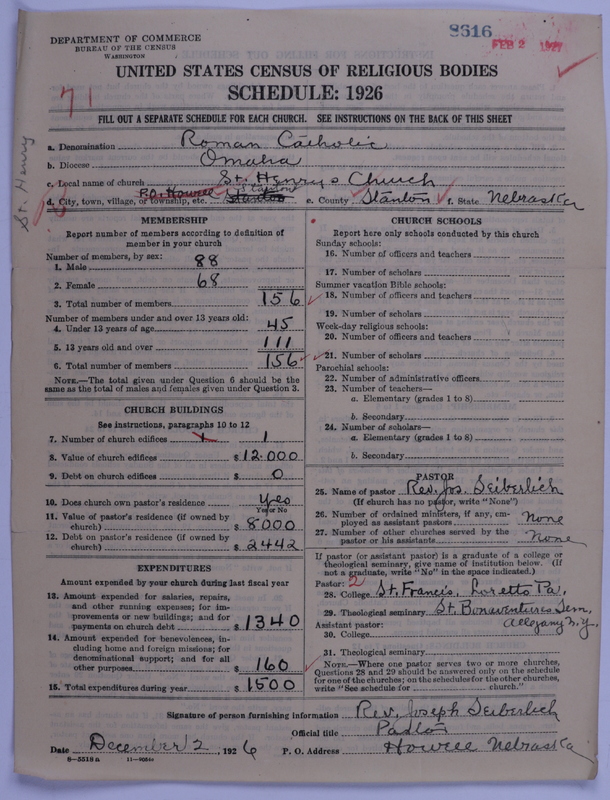 8816
FEB 2 1927
DEPARTMENT OF COMMERCE
BUREAU OF THE CENSUS
WASHINGTON
UNITED STATES CENSUS OF RELIGIOUS BODIES
SCHEDULE: 1926
71
FILL OUT A SEPARATE SCHEDULE FOR EACH CHURCH. SEE INSTRUCTIONS ON THE BACK OF THIS SHEET
St. Henry
a. Denomination Roman Catholic
b. Diocese Omaha
c. Local name of church St. Henry's Church
d. City, town, village, or township, etc. P.O. Howell Stanton e. County Stanton f. State Nebraska
MEMBERSHIP
Report number of members according to definition of member in your church
Number of members, by sex:
1. Male 88
2. Female 68
3. Total number of members 156
Number of members under and over 13 years old:
4. Under 13 years of age 45
5. 13 years old and over 111
6. Total number of members 156
NOTE.—The total given under Question 6 should be the same as the total of males and females given under Question 3.
CHURCH BUILDINGS
See instructions, paragraphs 10 to 12
7. Number of church edifices 1 1
8. Value of church edifices $12.000
9. Debt on church edifices $ 0
10. Does church own pastor's residence yes
Yes or No
11. Value of pastor's residence (if owned by church) $ 8000
12. Debt on pastor's residence (if owned by church) $ 2442
EXPENDITURES
Amount expended by your church during last fiscal year
13. Amount expended for salaries, repairs, and other running expenses; for improvements or new buildings; and for payments on church debt $ 1340
14. Amount expended for benevolences, including home and foreign missions; for denominational support; and for all other purposes $ 160
15. Total expenditures during year $ 1500
CHURCH SCHOOLS
Report here only schools conducted by this church
Sunday schools:
16. Number of officers and teachers
17. Number of scholars
Summer vacation Bible schools:
18. Number of officers and teachers
19. Number of scholars
Week-day religious schools:
20. Number of officers and teachers
21. Number of scholars
Parochial schools:
22. Number of administrative officers
23. Number of teachers—
a. Elementary (grades 1 to 8)
b. Secondary
24. Number of scholars—
a. Elementary (grades 1 to 8)
b. Secondary
PASTOR
25. Name of pastor Rev. Jos. Seiberlich
(If church has no pastor, write "None")
26. Number of ordained ministers, if any, employed as assistant pastors None
27. Number of other churches served by the pastor or his assistants None
If pastor (or assistant pastor) is a graduate of a college or theological seminary, give name of institution below. (If not a graduate, write "No" in the space indicated.)
Pastor: 2
28. College St. Francis, Loretto Pa.
29. Theological seminary St. Bonaventures Sem.
Assistant pastor: Allegany N.Y.
30. College
31. Theological seminary
NOTE.—Where one pastor serves two or more churches, Questions 28 and 29 should be answered only on the schedule for one of the churches; on the schedules for the other churches, write "See schedule for church."
Signature of person furnishing information Rev. Joseph Seiberlich
Official title Pastor
Date December 2, 1926 P. O. Address Howell Nebraska
8—5518 a